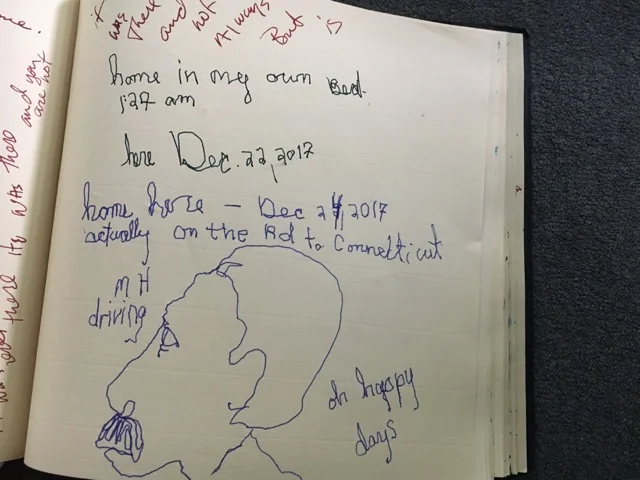 it
was
There
and
not
Always
But is
home in my own Bed.
1:27 am
here Dec. 22, 2017
home here - Dec 24, 2017
actually on the Rd to Connecticut
MH
driving
oh happy
days
there He was there and you
are not